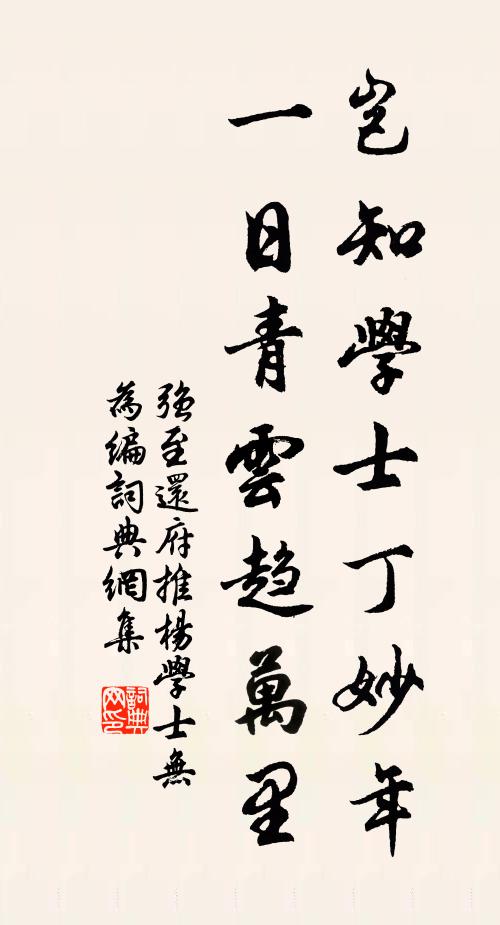 岂知學士丁妙年
一日青雲趋萬里
強至還府推楊學士無
為編詞典網集
詞典網印